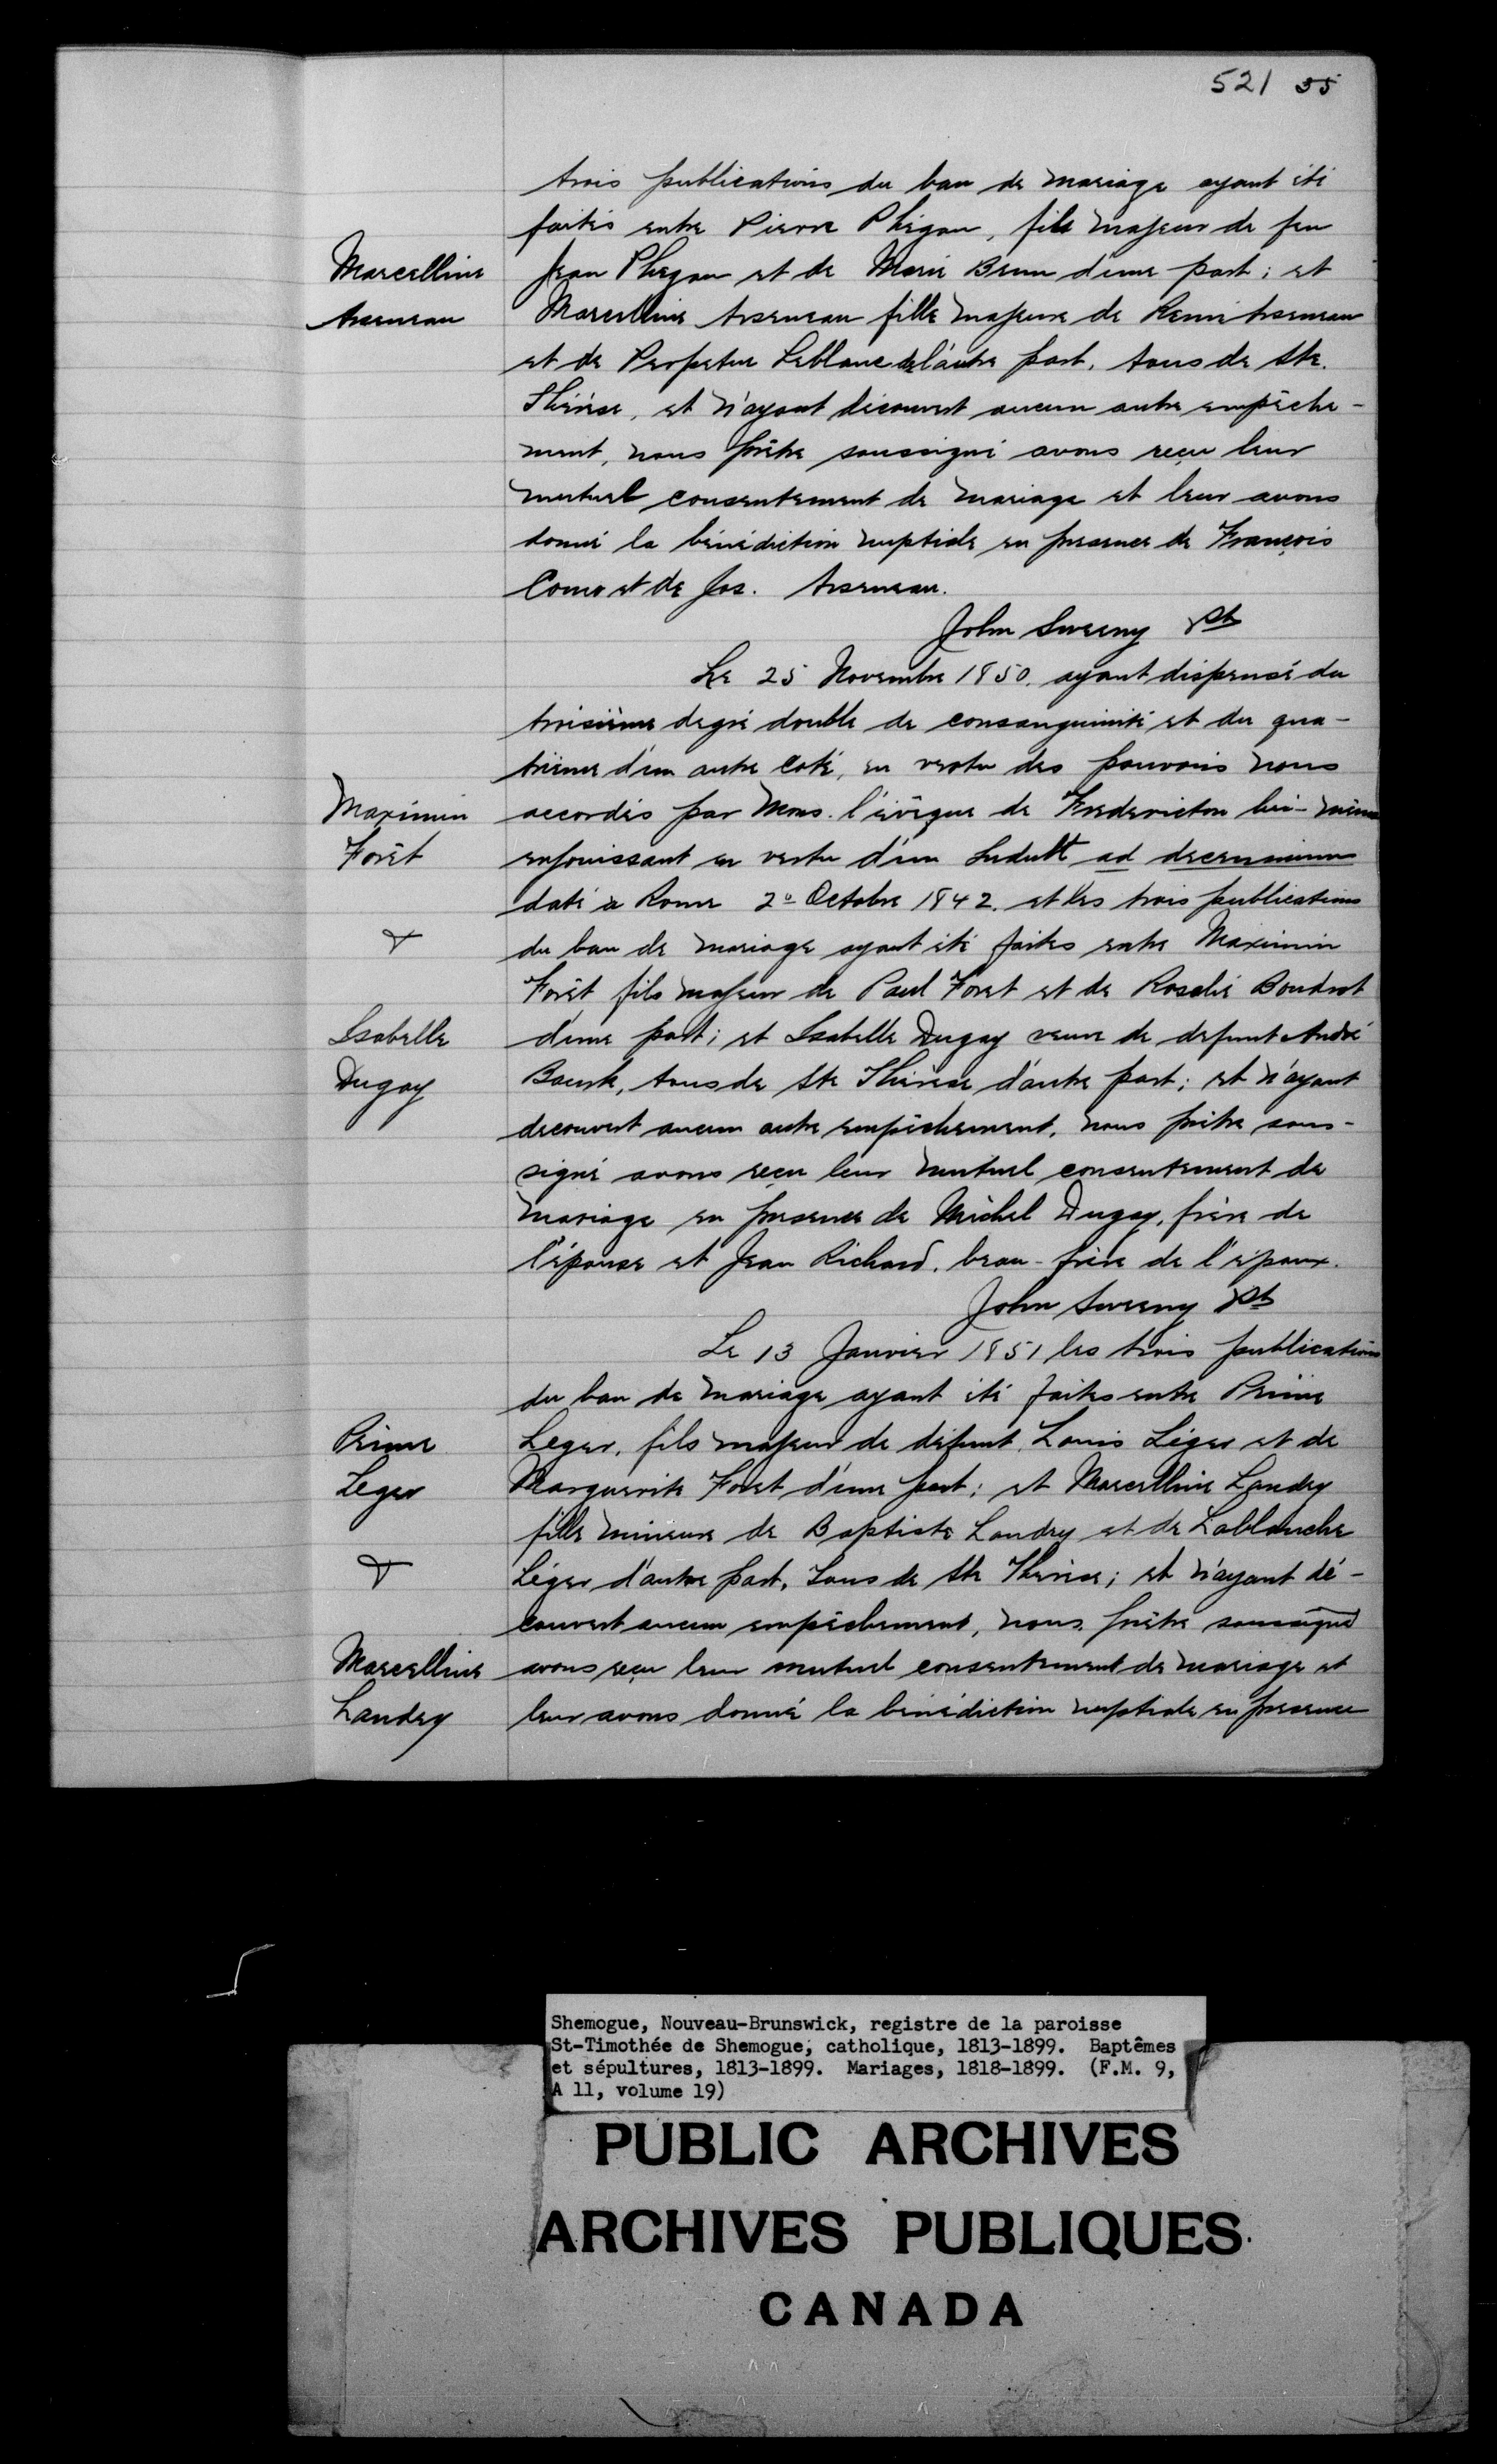 521 35
trois publications du ban de mariage ayant été
faites entre Pierre Phégan, fils majeur de feu
Marcelline Jean Phegan et de Marie Brun d'une part; et
Arseneau Marcelline Arseneau fille majeure de Remi Arseneau
et de Perpetue Leblanc de l'autre part, tous de Ste.
Thérèse, et n'ayant découvert aucun autre empêche-
ment, nous prêtre soussigné avons reçu leur
mutuel consentement de mariage et leur avons
donné la bénédiction nuptiale en presence de François
Como et de Jos. Arseneau.
John Sweeny Pt
Le 25 Novembre 1850, ayant dispensé du
troisième degré double de consanguinité et du qua-
trième d'un autre coté, en vertu des pouvoirs nous
Maximin accordés par Mons. l'évêque de Fredericton lui-même
Forêt enjouissant en vertu d'un Indult ad decennium
daté à Rome 2o Octobre 1842, et les trois publications
& du ban de mariage ayant été faites entre Maximin
Forêt fils majeur de Paul Foret et de Rosalie Boudrot
Isabelle d'une part; et Isabelle Dugay veuve de defunt André
Dugay Bourk, tous de Ste Thérèse d'autre part; et n'ayant
decouvert aucun autre empêchement, nous prêtre sous-
signé avons reçu leur mutuel consentement de
mariage en presence de Michel Dugay, frère de
l'épouse et Jean Richard, beau-frère de l'epoux.
John Sweeny Pt
Le 13 Janvier 1851 les trois publications
du ban de mariage ayant été faites entre Prime
Prime Leger, fils majeur de défunt Louis Léger et de
Leger Marguerite Foret d'une part; et Marcelline Landry
fille mineure de Baptiste Landry et de Lablanche
& Léger d'autre part, tous de Ste Therèse; et n'ayant dé-
couvert aucun empêchement, nous prêtre soussigné
Marcelline avons reçu leur mutuel consentement de mariage et
Landry leur avons donné la bénédiction nuptiale en presence
Shemogue, Nouveau-Brunswick, registre de la paroisse
St-Timothée de Shemogue, catholique, 1813-1899. Baptêmes
et sépultures, 1813-1899. Mariages, 1818-1899. (F.M. 9,
A 11, volume 19)
PUBLIC ARCHIVES
ARCHIVES PUBLIQUES
CANADA